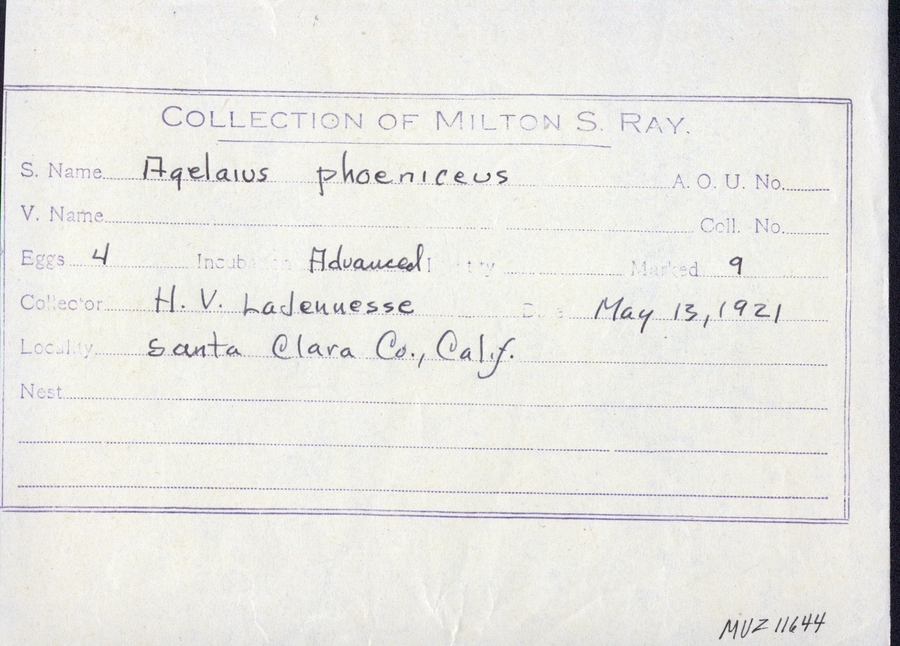 COLLECTION OF MILTON S. RAY.
S. Name Agelaius phoeniceus A. O. U. No.
V. Name Coll. No.
Eggs 4 Incubation Advanced Identity Marked 9
Collector H. V. LaJeunesse Date May 13, 1921
Locality Santa Clara Co., Calif.
Nest
MVZ 11644